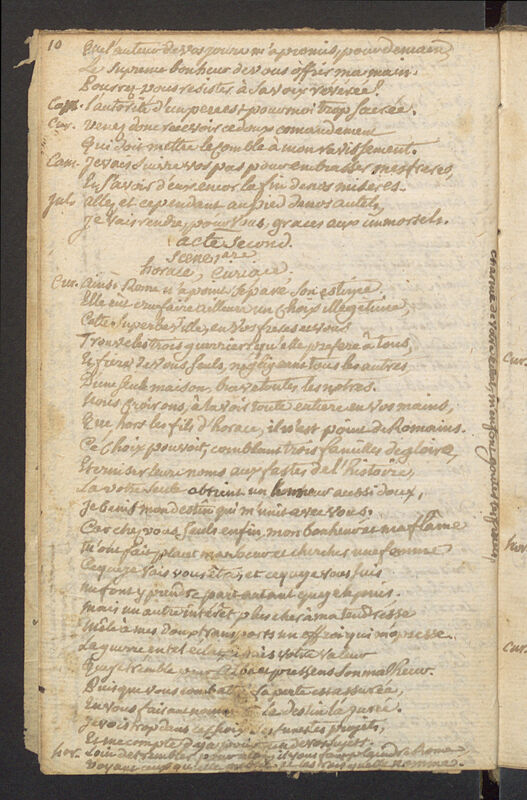 10
Que l'auteur de vos jours m'a promis, pour demain
Le supreme bonheur de vous offrir ma main.
Pourrez vous resister à sa voix révérée?
Cam. l'autorité d'un pere est pour moi trop sacrée.
Cur. Venez donc recevoir ce doux comandement
Qui doit mettre le comble à mon ravissement.
Cam. Je vais suivre vos pas pour embrasser mes freres,
Et savoir d'eux encor la fin de nos miseres.
Jul. allez, et cependant au pied de nos autels,
Je vais rendre, pour vous, graces aux immortels.
acte second.
scene 1ere
horace, curiace,
Cur. Ainsi Rome n'a point separé son estime
Elle eut cru faire ailleurs un choix illegitime,
Cette superbe ville, en vos freres et vous
Trouve les trois guerriers qu'elle prefere à tous,
D'une seule maison brave toutes les notres.
Nous croirons, à la voir toute entiere en vos mains,
Que hors les fils d'horace, il n'est point de Romains.
Ce choix pouvoit, combler trois familles de gloire,
Eterniser leurs noms aux fastes de l'histoire,
La votre seule obtient un honneur aussi doux,
Je benis mon destin qui m'unit avec vous.
Car chez vous seuls enfin, mon bonheur et ma flâme
m'ont fait placer ma soeur et chercher une femme
Ce que je vais vous être et ce que je vous suis
me font y prendre part autant que je le puis.
mais un autre interêt plus cher à ma tendresse
Mêle à mes doux transports un effroi qui m'opresse.
La guerre en tel eclat a mis votre valeur
Que je tremble pour Albe et pressens son malheur.
Puisque vous combattez sa perte est assurée,
En vous faisant nommer le destin l'a jurée.
Je vois trop dans ce choix ses funestes projets,
Et me compte deja pour un de vos sujets.
hor. Loin de trembler pour Albe, il vous faut plaindre Rome
Voyant ceux qu'elle oublie et les trois qu'elle nomme.
Cur.
hor.
Cur.